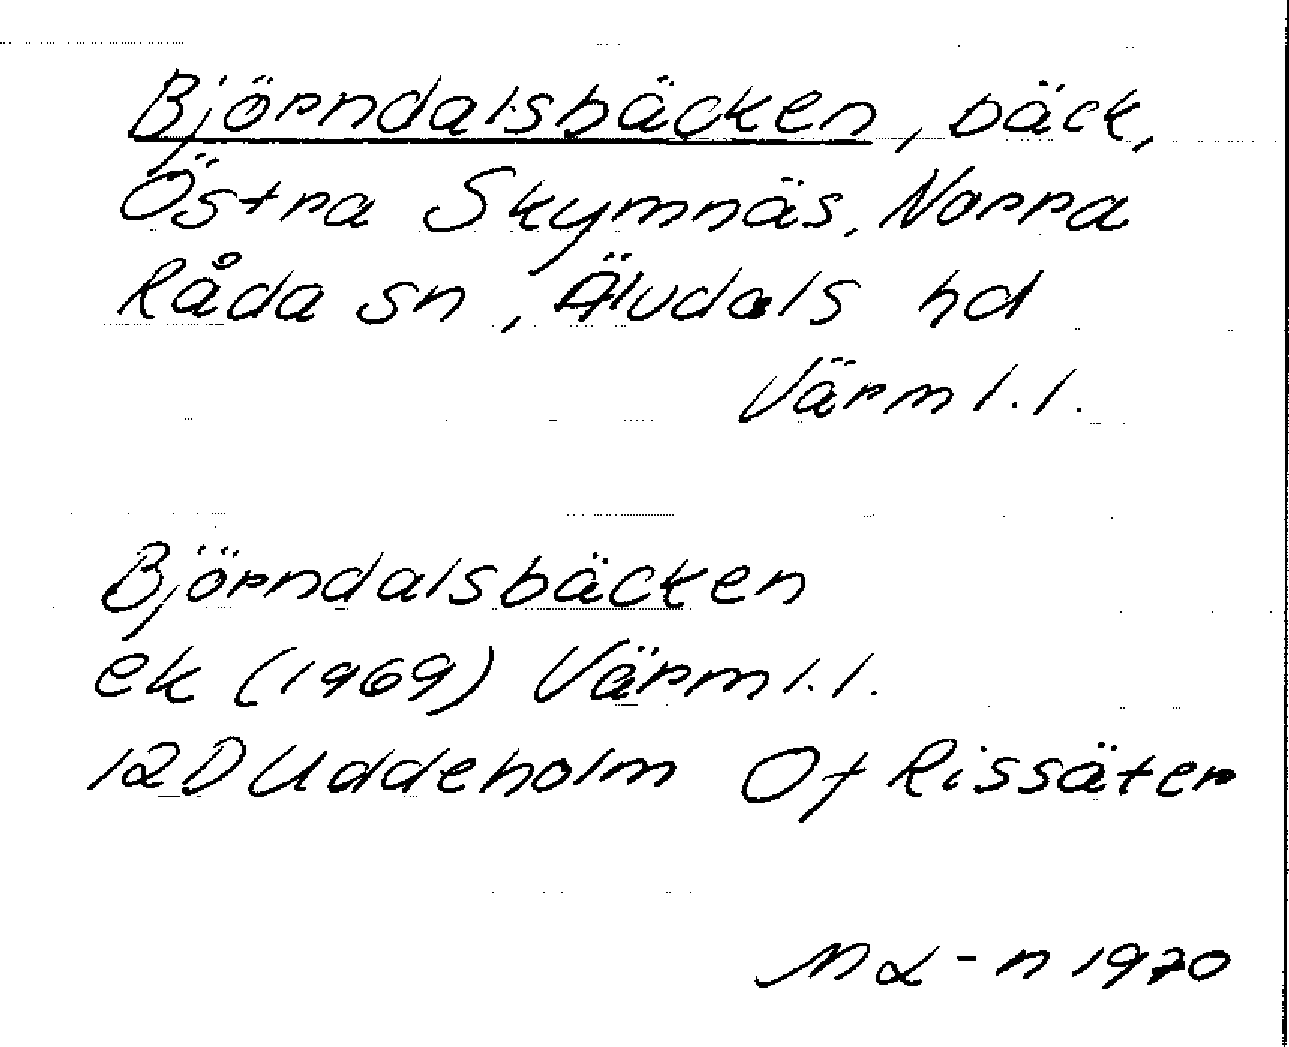 Björndalsbäcken, bäck,
Östra Skymnäs, Norra
Råda sn, Älvdals hd
Värml. l.
Björndalsbäcken
ek (1969) Värml. l.
12D Uddeholm Of Rissäter
1970